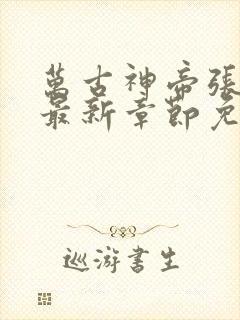 萬古神帝張
最新章節免
巡游書生